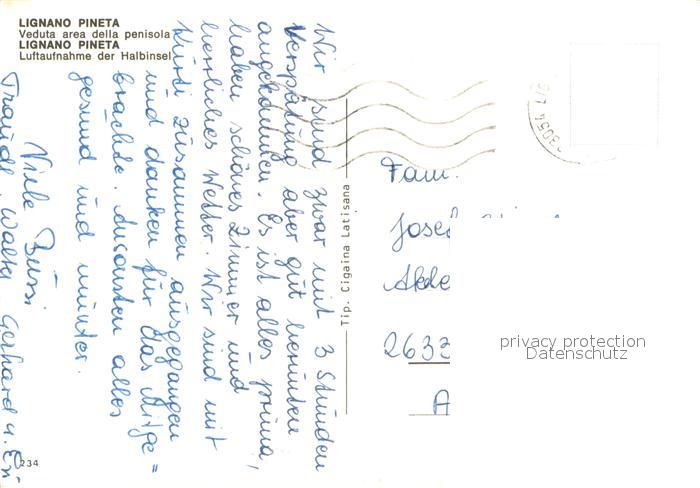 LIGNANO PINETA
Veduta area della penisola
LIGNANO PINETA
Luftaufnahme der Halbinsel
Wir sind zwar mit 3 Stunden
Verspätung aber gut herunten
angekommen. Es ist alles prima,
haben schönes Zimmer und
herrliches Wetter. Wir sind mit
zusammen ausgegangen
und danken für das Mitge=
brachte. Ansonsten alles
gesund und munter.
Viele Bussi
Traudl, Walter, Gerhard u.
234
Tip. Cigaina Latisana
33054
Fam.
Josef
2633
A
privacy protection
Datenschutz